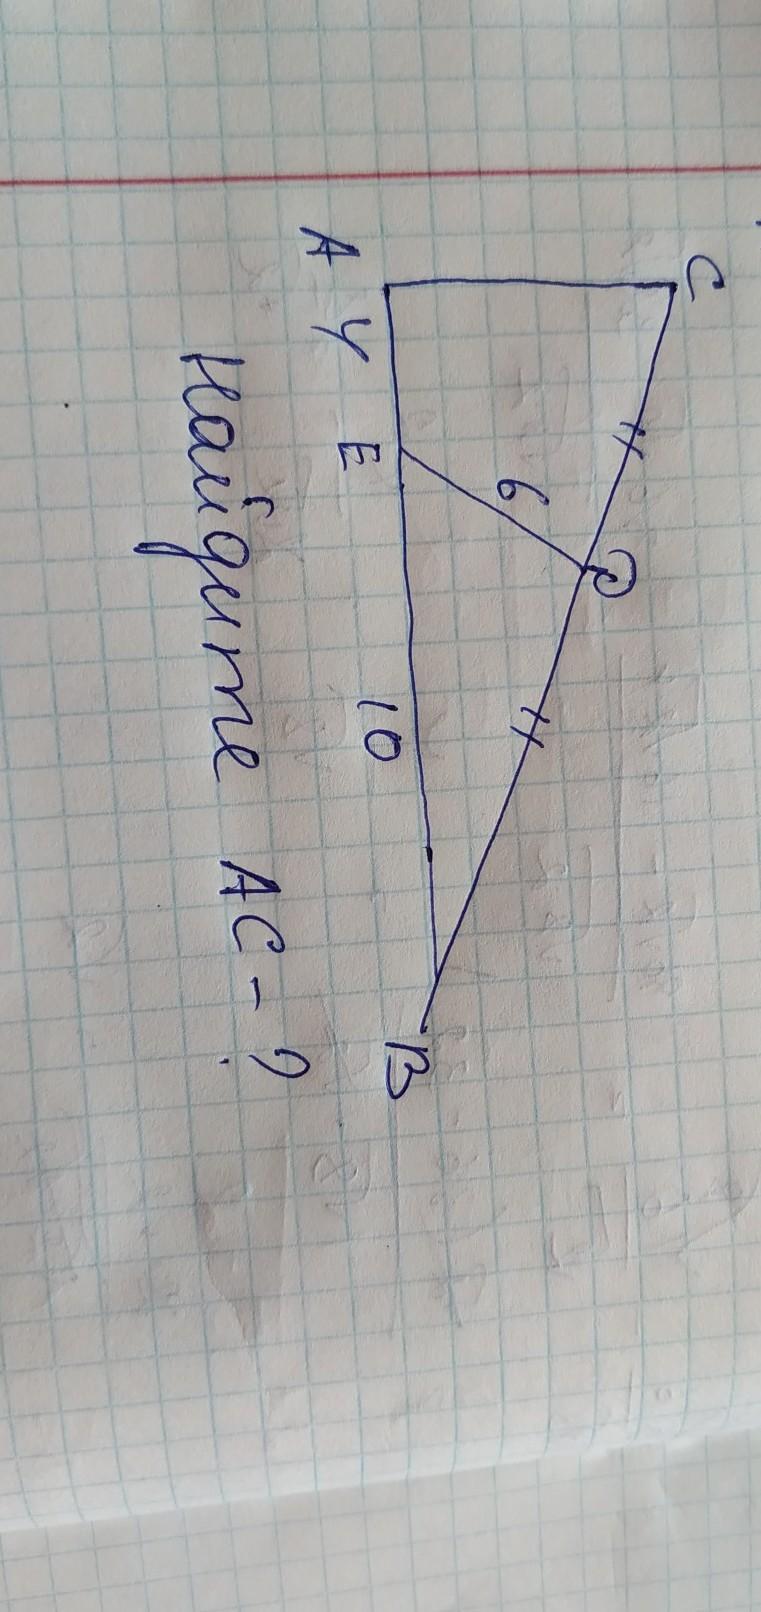 C
D
6
A
4
E
10
B
Найдите AC - ?